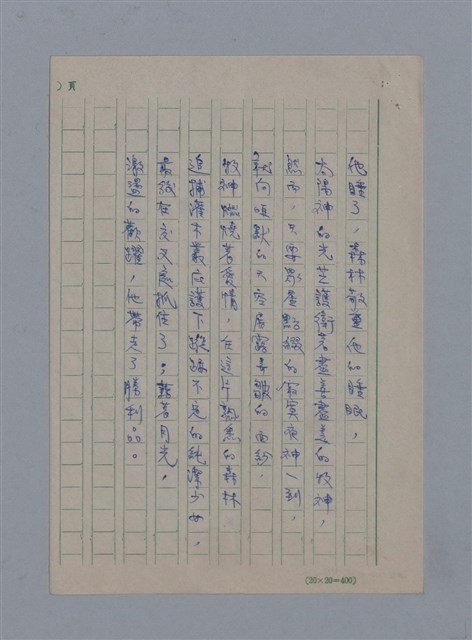 頁
他睡了，森林敬重他的睡眠，
太陽神的光芝護衛着盡善盡美的牧神，
然而，只要眾星點綴的寂寞夜神一到，
就向頭默的天空展露美皺的面紗。
牧神燃燒著愛情，在這片熟悉的森林
追捕灌木叢庇護下蹤跡不定的純潔少女，
最識在交叉處抓住了，藉著月光，
激盪的歡躍，他帶走了勝利品。
(20×20=400)